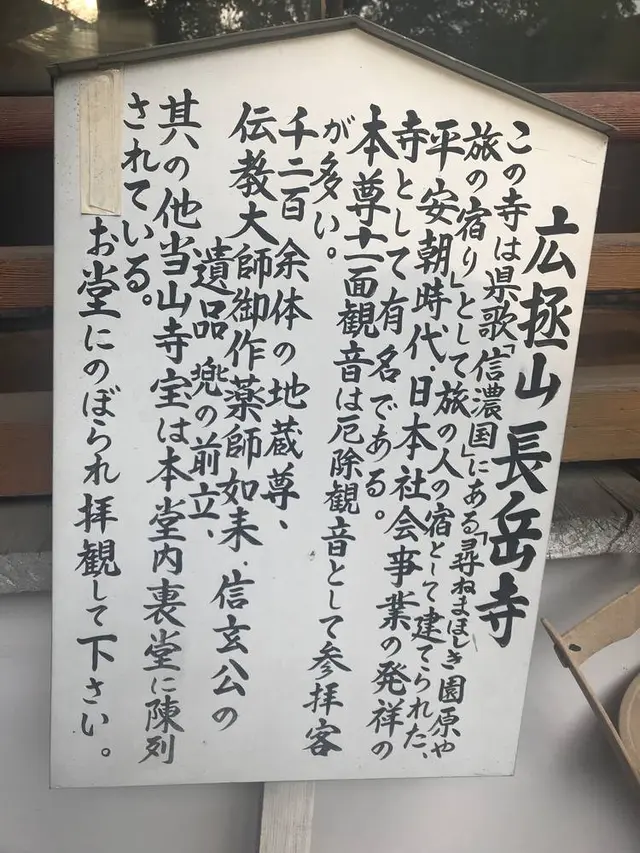 広拯山 長岳寺
この寺は県歌「信濃国」にある「尋ねまほしき園原や
旅の宿り」として旅の人の宿として建てられた、
平安朝時代、日本社会事業の発祥の
寺として有名である。
本尊十一面観音は厄除観音として参拝客
が多い。
千二百余体の地蔵尊、
伝教大師御作薬師如来、信玄公の
遺品 兜の前立、
其の他当山寺宝は本堂内裏堂に陳列
されている。
お堂にのぼられ拝観して下さい。